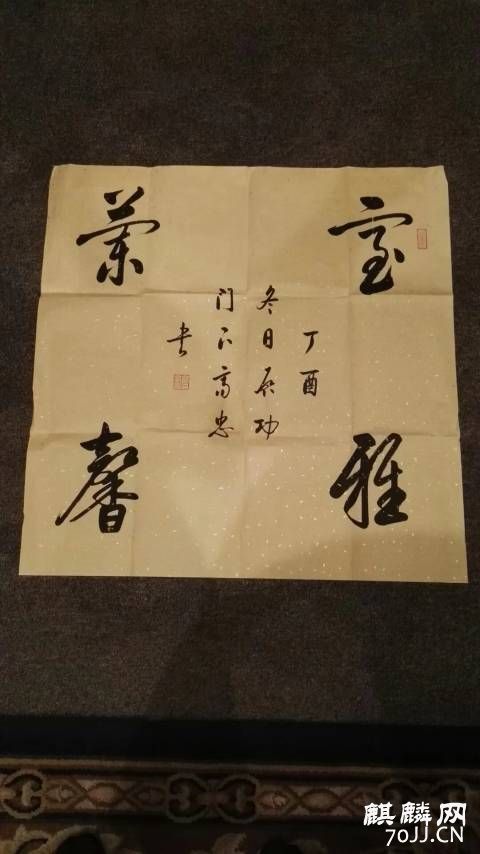 室雅
蘭馨
丁酉
冬日启功
门下高忠
书
麒麟网
70JJ.CN